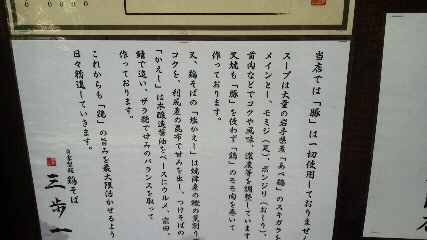 当店では「豚」は一切使用しておりません
スープは大量の岩手県産「あべ鶏」のスキガラを
メインとし、モミジ(足)、ボンジリ(おしり)、
首肉などでコクや風味、濃度等を調整しています
叉焼も「豚」を使わず「鶏」のモモ肉を巻いて
作っております。
又、鶏そばの「塩かえし」は焼津産の鰹の荒削り
コクを、利尻産の昆布で甘みを出し、つけそばの
「かえし」は本醸造醤油をベースにウルメ、宗田、
鯖で追い、ザラ糖で甘みのバランスを取って
作っております。
これからも「鶏」の旨みを最大限活かせるよう
日々精進していきます。
自家製麺 鶏そば
三歩一